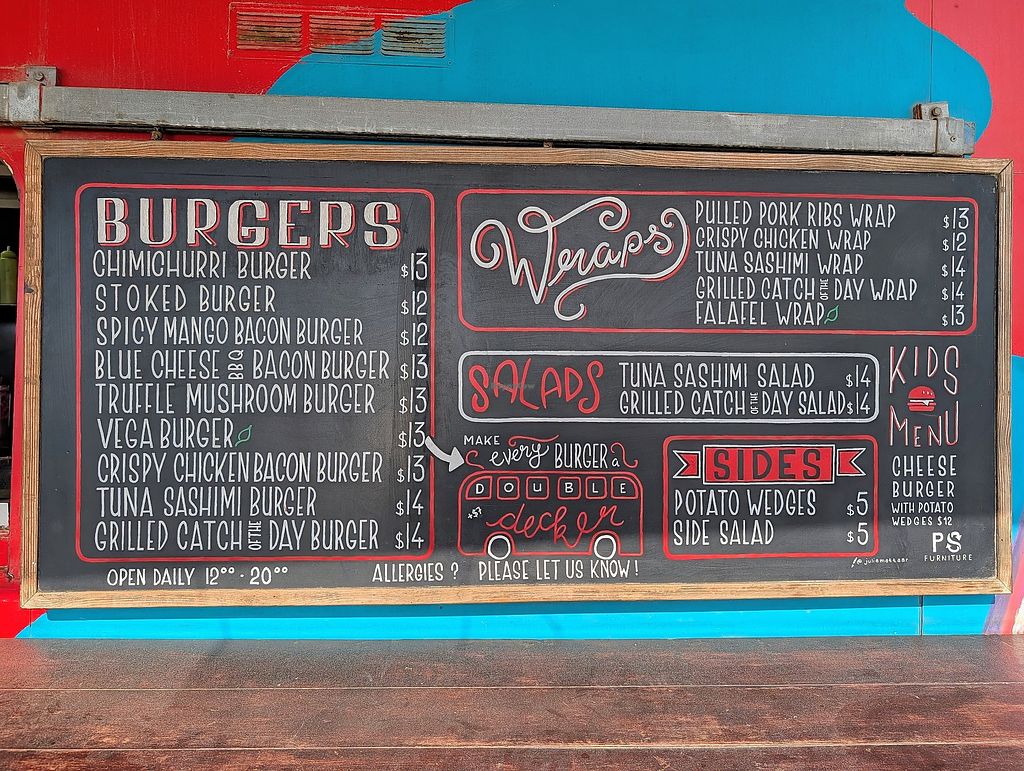 BURGERS
CHIMICHURRI BURGER $13
STOKED BURGER $12
SPICY MANGO BACON BURGER $12
BLUE CHEESE BBQ BACON BURGER $13
TRUFFLE MUSHROOM BURGER $13
VEGA BURGER $13
CRISPY CHICKEN BACON BURGER $13
TUNA SASHIMI BURGER $14
GRILLED CATCH OF THE DAY BURGER $14
Wraps
PULLED PORK RIBS WRAP $13
CRISPY CHICKEN WRAP $12
TUNA SASHIMI WRAP $14
GRILLED CATCH OF THE DAY WRAP $14
FALAFEL WRAP $13
SALADS
TUNA SASHIMI SALAD $14
GRILLED CATCH OF THE DAY SALAD $14
MAKE every BURGER a
DOUBLE
+$7 decker
SIDES
POTATO WEDGES $5
SIDE SALAD $5
KIDS
MENU
CHEESE
BURGER
WITH POTATO
WEDGES $12
PS
FURNITURE
OPEN DAILY 12°° - 20°°
ALLERGIES ? PLEASE LET US KNOW !